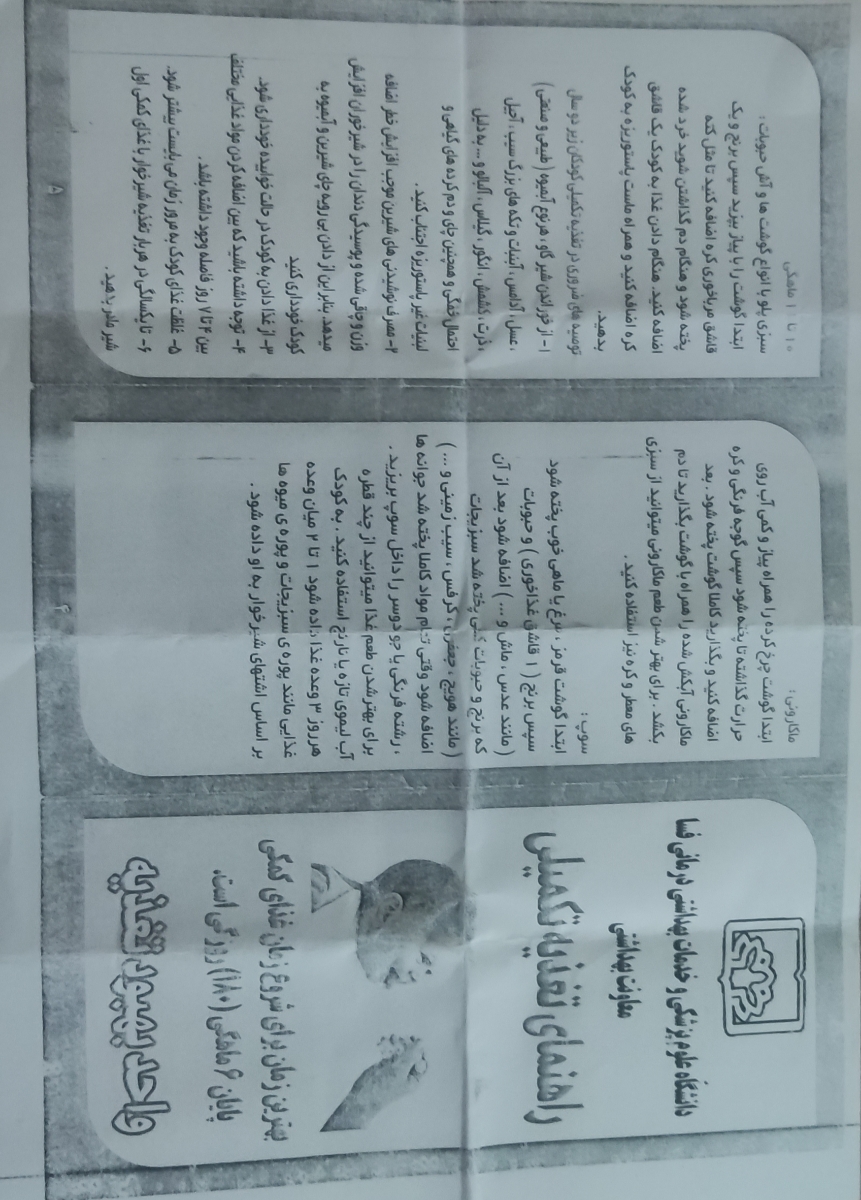 دانشگاه علوم پزشکی و خدمات بهداشتی درمانی فسا
معاونت بهداشتی
راهنمای تغذیه تکمیلی
بهترین زمان برای شروع زمان غذای کمکی
پایان ۶ ماهگی (۱۸۰) روزگی است.
واحد بهبود تغذیه
ماکارونی :
ابتدا گوشت چرخ کرده را همراه پیاز و کمی آب روی
حرارت گذاشته تا پخته شود سپس گوجه فرنگی و کره
اضافه کنید و بگذارید کاملا گوشت پخته شود . بعد
ماکارونی آبکش شده را همراه با گوشت بگذارید تا دم
بکشد . برای بهتر شدن طعم ماکارونی میتوانید از سبزی
های معطر و کره نیز استفاده کنید .
سوپ :
ابتدا گوشت قرمز ، مرغ یا ماهی خوب پخته شود
سپس برنج ( ۱ قاشق غذاخوری ) و حبوبات
( مانند عدس ، ماش و ... ) اضافه شود بعد از آن
که برنج و حبوبات کمی پخته شد سبزیجات
( مانند هویج ، جعفری ، کرفس ، سیب زمینی و ... )
اضافه شود وقتی تمام مواد کاملا پخته شد جوانه ها
، رشته فرنگی یا جو دوسر را داخل سوپ بریزید .
برای بهتر شدن طعم غذا میتوانید از چند قطره
آب لیموی تازه یا نارنج استفاده کنید . به کودک
هر روز ۳ وعده غذا داده شود ۱ تا ۲ میان وعده
غذایی مانند پوره ی سبزیجات و پوره ی میوه ها
بر اساس اشتهای شیرخوار به او داده شود .
۱۰ تا ۱ ماهگی
سبزی پلو با انواع گوشت ها و آش حبوبات :
ابتدا گوشت را با پیاز بپزید سپس برنج و یک
قاشق مرباخوری کره اضافه کنید تا مثل کته
پخته شود و هنگام دم گذاشتن شوید خرد شده
اضافه کنید. هنگام دادن غذا به کودک یک قاشق
کره اضافه کنید و همراه ماست پاستوریزه به کودک
بدهید.
توصیه های ضروری در تغذیه تکمیلی کودکان زیر دو سال
۱- از خوراندن شیر گاو ، هر نوع آبمیوه ( طبیعی و صنعتی )
، عسل ، آدامس ، آبنبات و تکه های بزرگ سیب ، آجیل
، ذرت ، کشمش ، انگور ، گیلاس ، آلبالو و ... به دلیل
احتمال خفگی و همچنین چای و دم کرده های گیاهی و
لبنیات غیر پاستوریزه اجتناب کنید .
۲- مصرف نوشیدنی های شیرین موجب افزایش خطر اضافه
وزن و چاقی شده و پوسیدگی دندان را در شیرخوران افزایش
میدهد. بنابراین از دادن بی رویه چای شیرین و آبمیوه به
کودک خودداری کنید
۳- از غذا دادن به کودک در حالت خوابیده خودداری شود.
۴- توجه داشته باشید که بین اضافه کردن مواد غذایی مختلف
بین ۴ تا ۷ روز فاصله وجود داشته باشد .
۵- غلظت غذای کودک به مرور زمان می بایست بیشتر شود.
۶- تا یکسالگی در هر بار تغذیه شیرخوار با غذای کمکی اول
شیر مادر بدهید .
۵